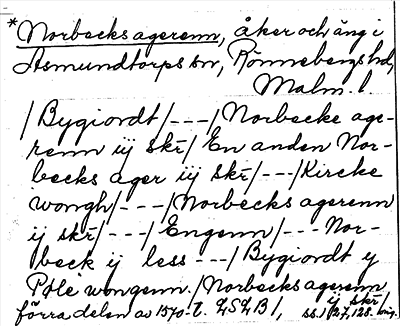 *Norbecks agerenn, åker och äng i
Asmundtorps sn, Rönnebergs hd,
Malm. l.
/Bygiordt/---/Norbecke age-
renn iij skr̄/En anden Nor-
becks ager iij skr̄/---/Kircke
wongh/---/Norbecks agerenn
ij skr̄/---/Engenn/---Nor-
beck ij less---/Bygiordt y
Pÿle wongenn./Norbecks agerenn
ij skr̄/
förra delen av 1570-t. LSLB1, ss. 127, 128. orig.